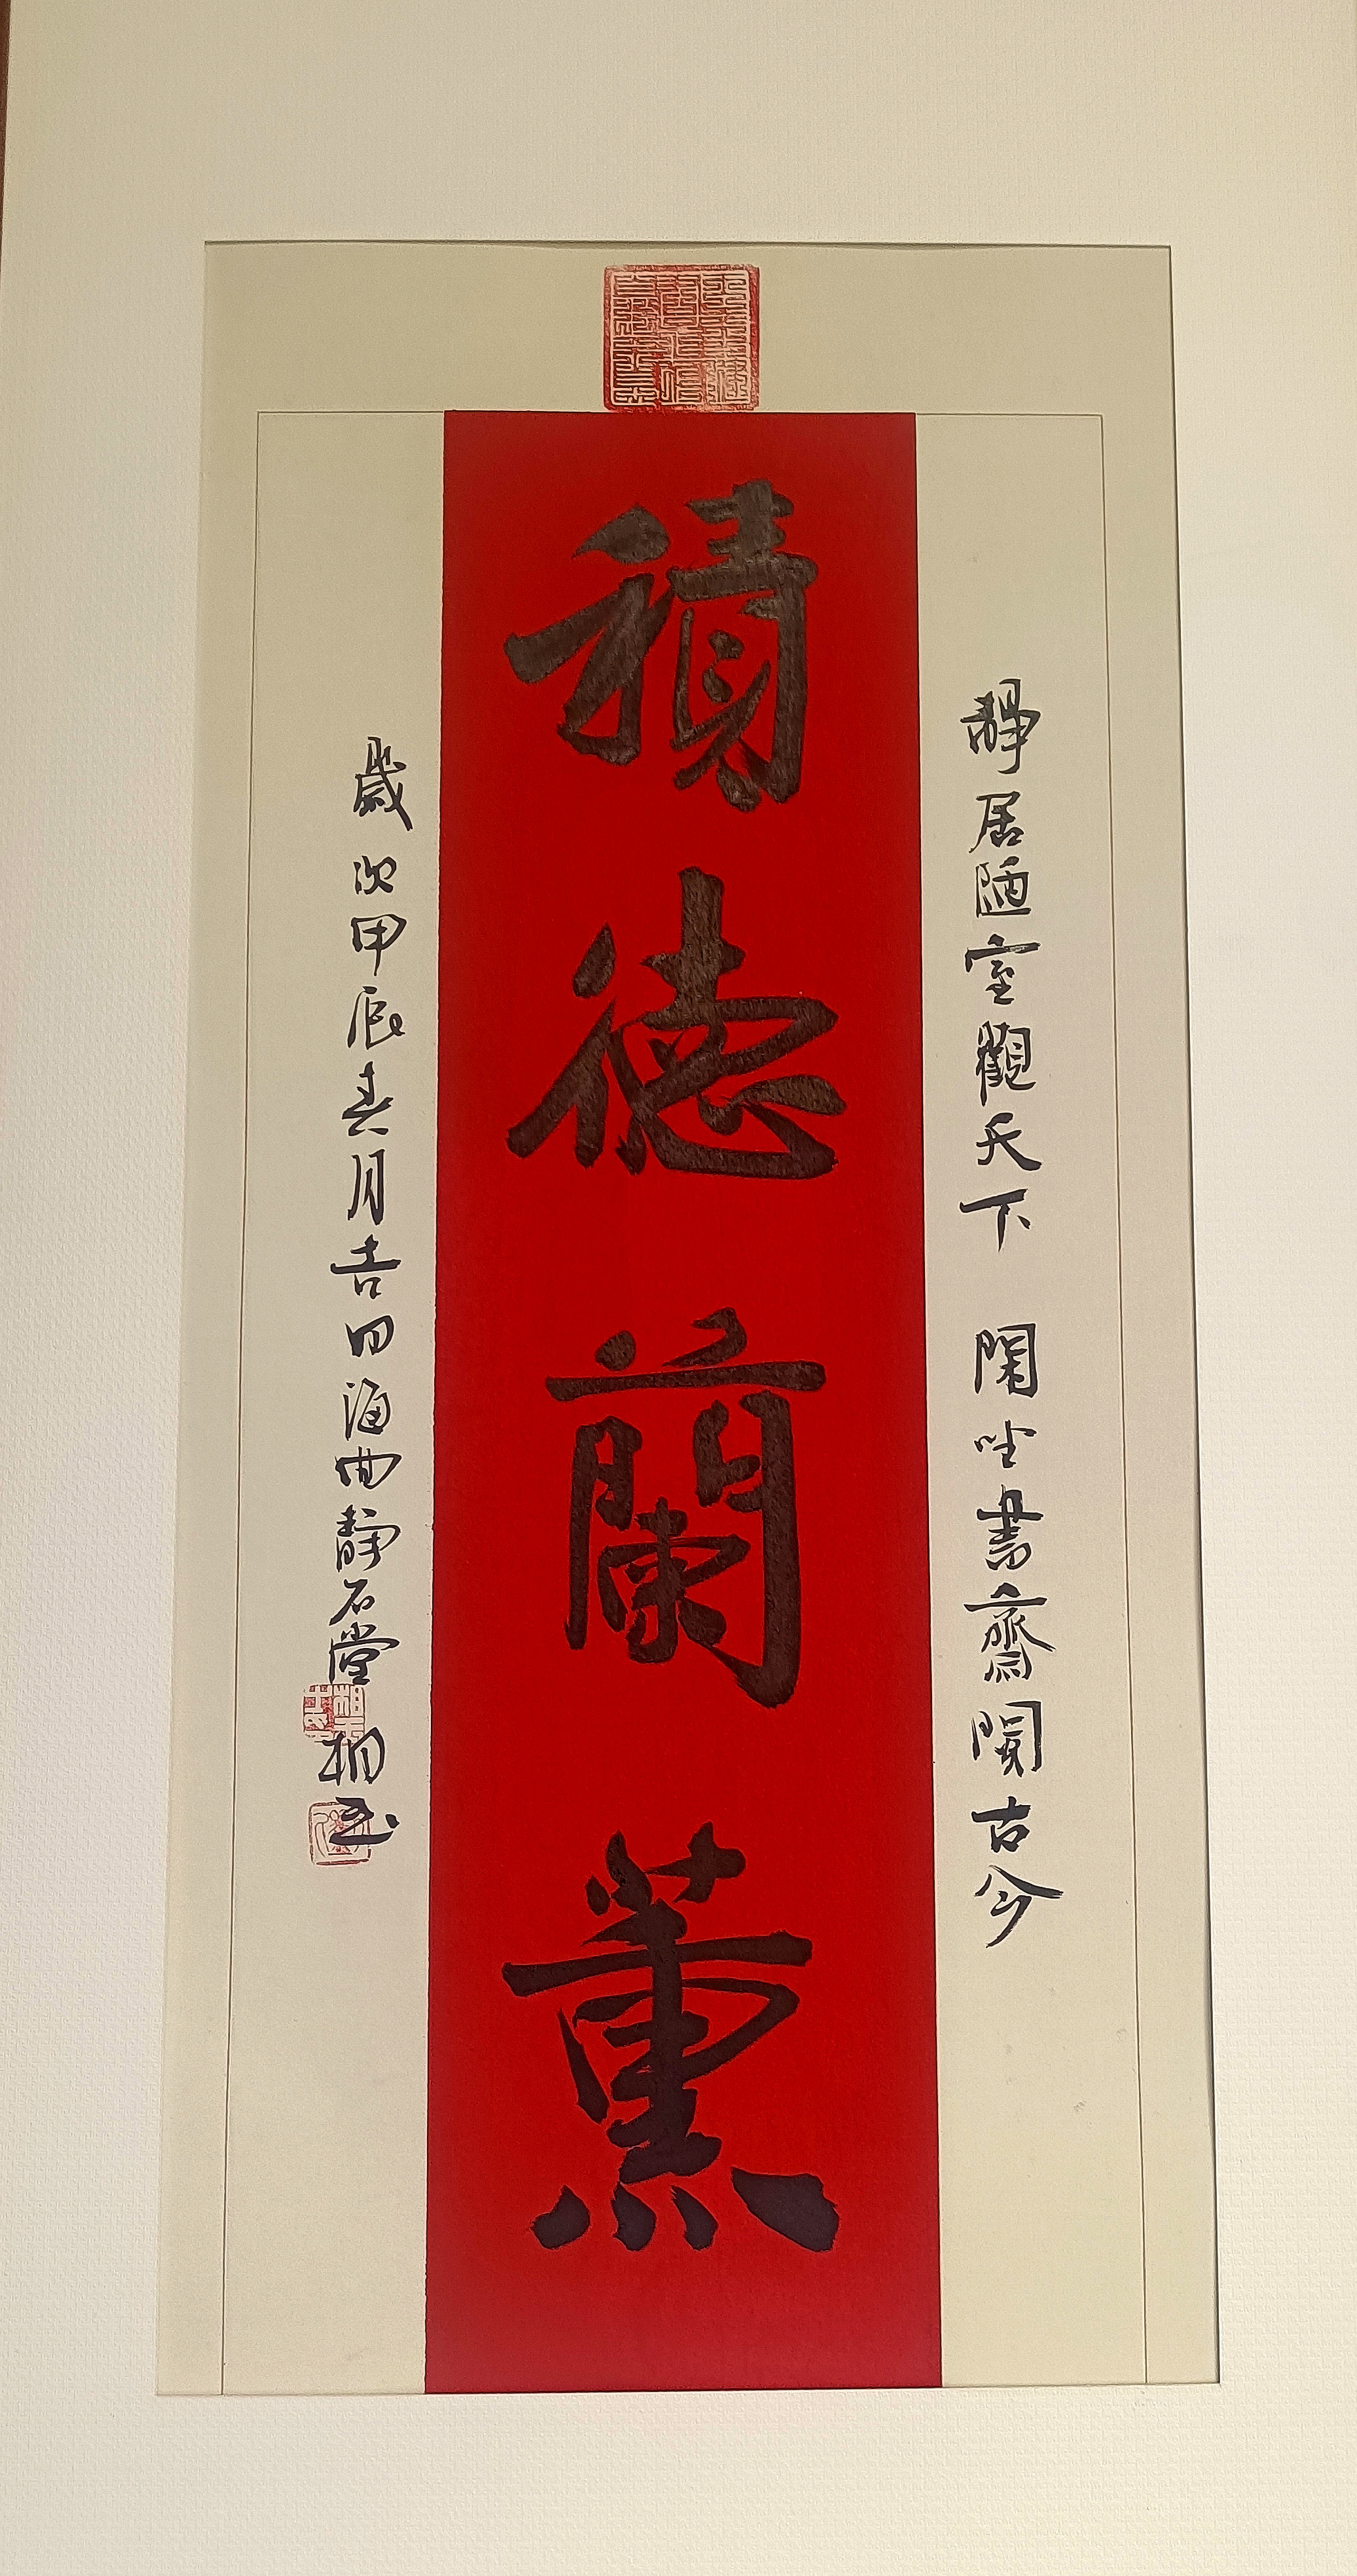 靜居陋室觀天下 閑坐書齋閱古今
積德蘭薰
歲次甲辰春月吉日海曲靜石堂